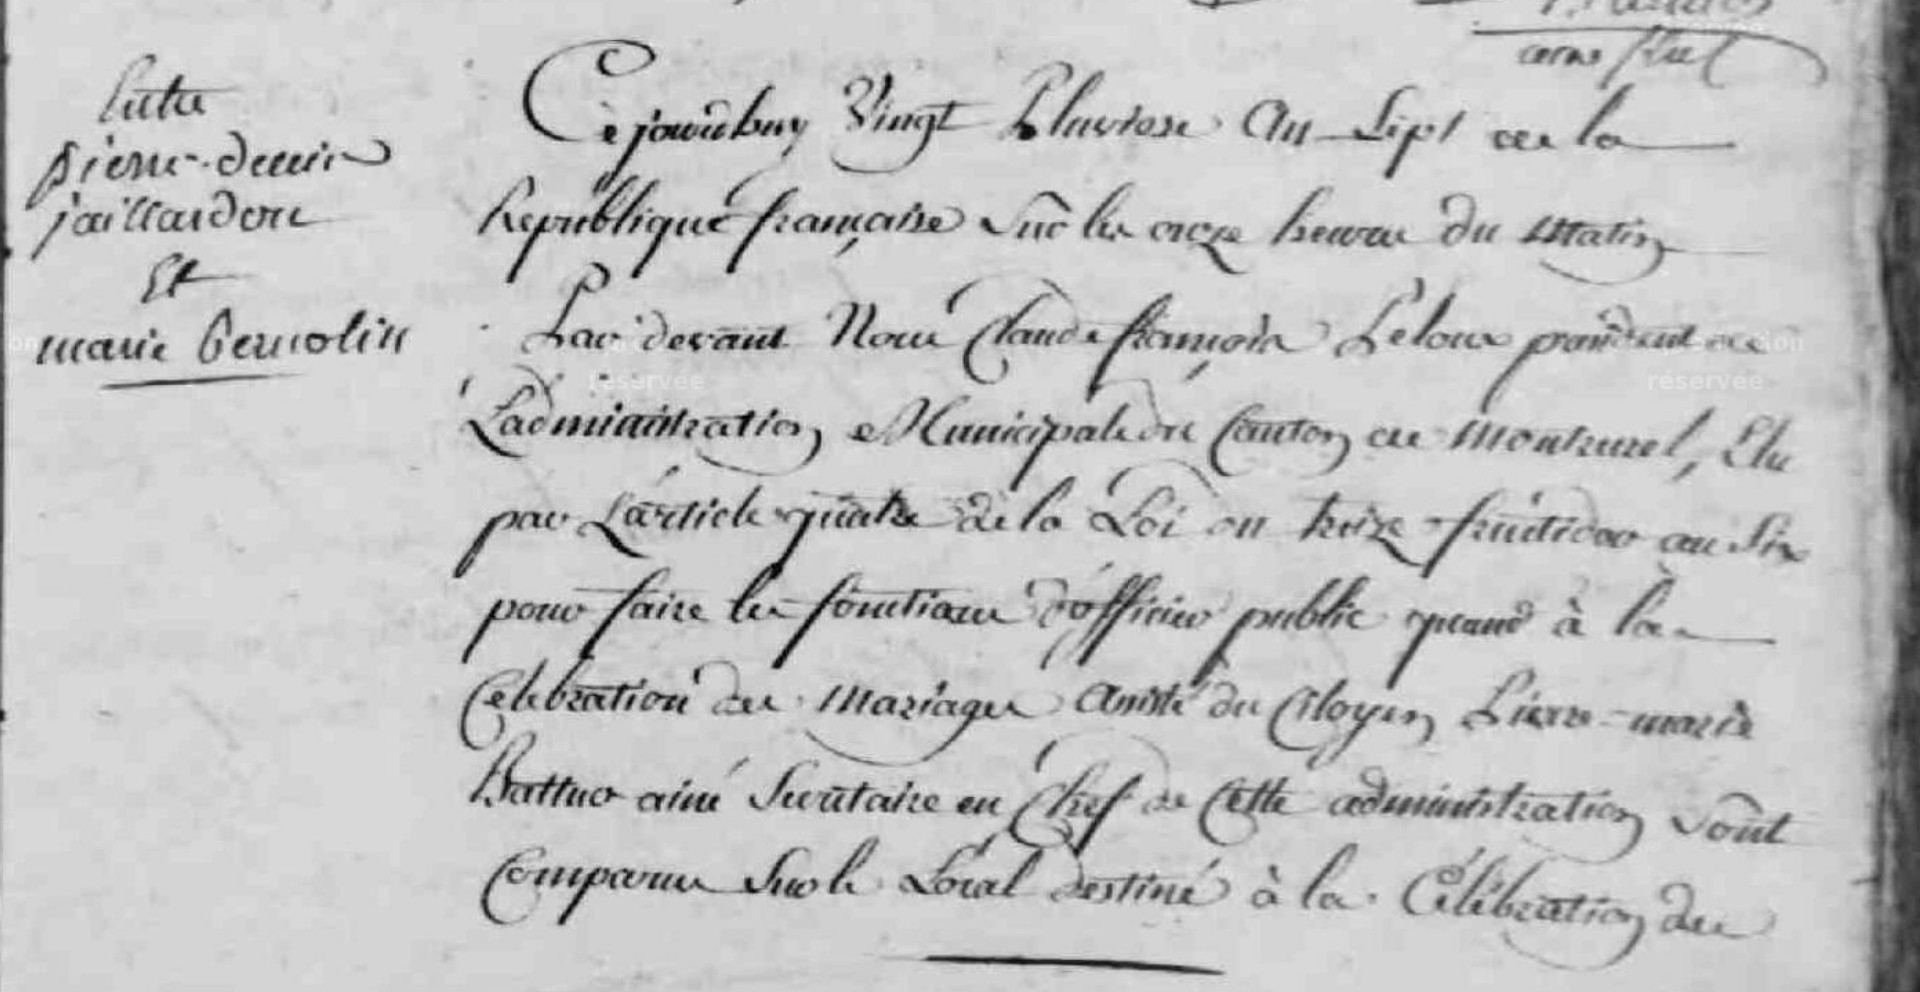 Entre
pierre-denis
jaillardon
Et
marie Bernolin
Cejourdhuy Vingt Pluviose An Sept de la
Republique française sur les onze heures du Matin
Par devant Nous Claude françois Leloux président de
L'administration Municipale du Canton de Montrevel, Elu
par L'article quatre de la Loi du treize fructidor an Six
pour faire les fonctions d'officier public quand à la
Celebration des Mariages Assisté du Citoyen Pierre-marie
ainé Secretaire en Chef de Cette administration Sont
Comparus Sur le Local destiné à la Célébration des